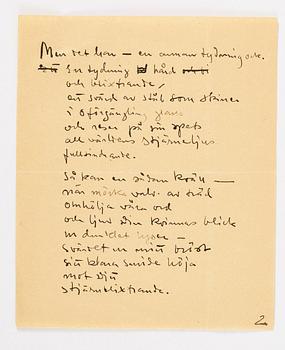 Men det kan – en annan tydning ock.
En tydning hård
och blixtrande,
ett svärd av stål som skiner
i oförgänglig glans
och reser på sin spets
all världens stjärneljus
fullsinkande.
Så kan en sådan kväll –
när mörka valv av träd
omhölja våra ord
och ljus din kvinnas blick
ur dunklet lyser –
svärdet ur mitt bröst
sitt klara smide höja
mot ditt
stjärnblixtrande.
2